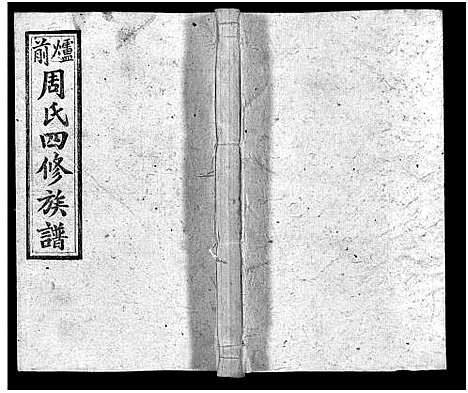 爐前
周氏四修族譜